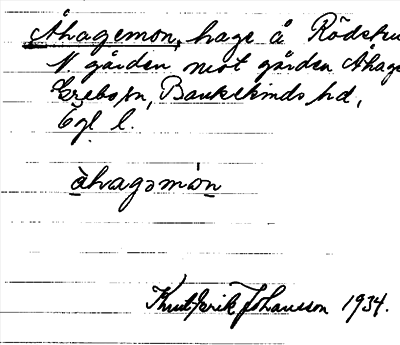 Åhagemon, hage å Rödstu
N. gården mot gården Åhage
Grebo sn, Bankekinds hd,
Ögl l.
åhagəmón
Knut Erik Johansson 1934.